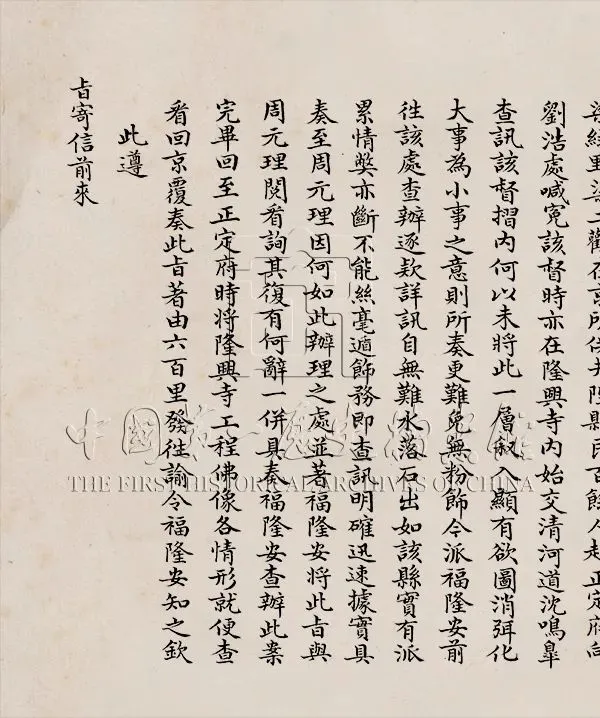 在京所供井陘縣民百餘人赴正定府向
劉浩處喊冤該督時亦在隆興寺內始交清河道沈鳴臯
查訊該督摺內何以未將此一層敘入顯有欲圖消弭化
大事為小事之意則所奏更難免無粉飾今派福隆安前
徃該處查辦逐欵詳訊自無難水落石出如該縣實有派
累情獘亦斷不能絲毫遁飾務即查訊明確迅速據實具
奏至周元理因何如此辦理之處並著福隆安將此旨與
周元理閱看詢其復有何辭一併具奏福隆安查辦此案
完畢回至正定府時將隆興寺工程佛像各情形就便查
看回京覆奏此旨著由六百里發徃諭令福隆安知之欽
此遵
旨寄信前來
中國第一歷史檔案館
THE FIRST HISTORICAL ARCHIVES OF CHINA